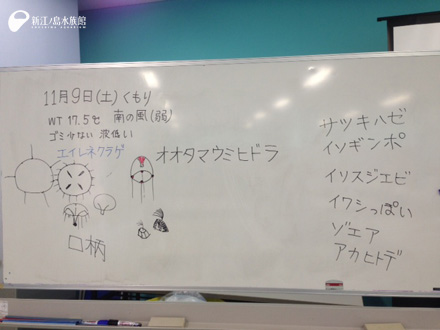 新江ノ島水族館
11月9日(土)くもり
WT 17.5℃ 南の風(弱)
ゴミ少ない 波低い
エイレネクラゲ
オオタマウミヒドラ
口柄
サツキハゼ
イソギンポ
イソスジエビ
イワシっぽい
ゾエア
アカヒトデ